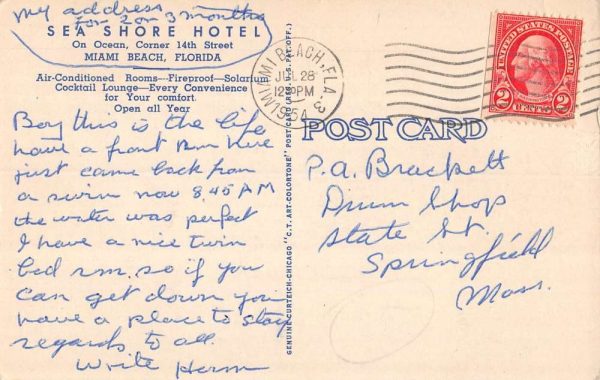 My address
for 2 or 3 months
SEA SHORE HOTEL
On Ocean, Corner 14th Street
MIAMI BEACH, FLORIDA
Air-Conditioned Rooms—Fireproof—Solarium
Cocktail Lounge—Every Convenience
for Your comfort.
Open all Year
Boy this is the life
have a front Rm here
just came back from
a swim now 8.45 AM
the water was perfect
I have a nice twin
bed rm. so if you
can get down you
have a place to stay
regards to all.
Write Herm
GENUINE CURTEICH-CHICAGO "C.T. ART-COLORTONE" POST CARD (REG. U.S. PAT. OFF.)
MIAMI BEACH, FLA. 3
JUL 28
PM
1954
UNITED STATES POSTAGE
2 CENTS 2
POST CARD
P.A. Brackett
Drum Shop
State St.
Springfield
Mass.